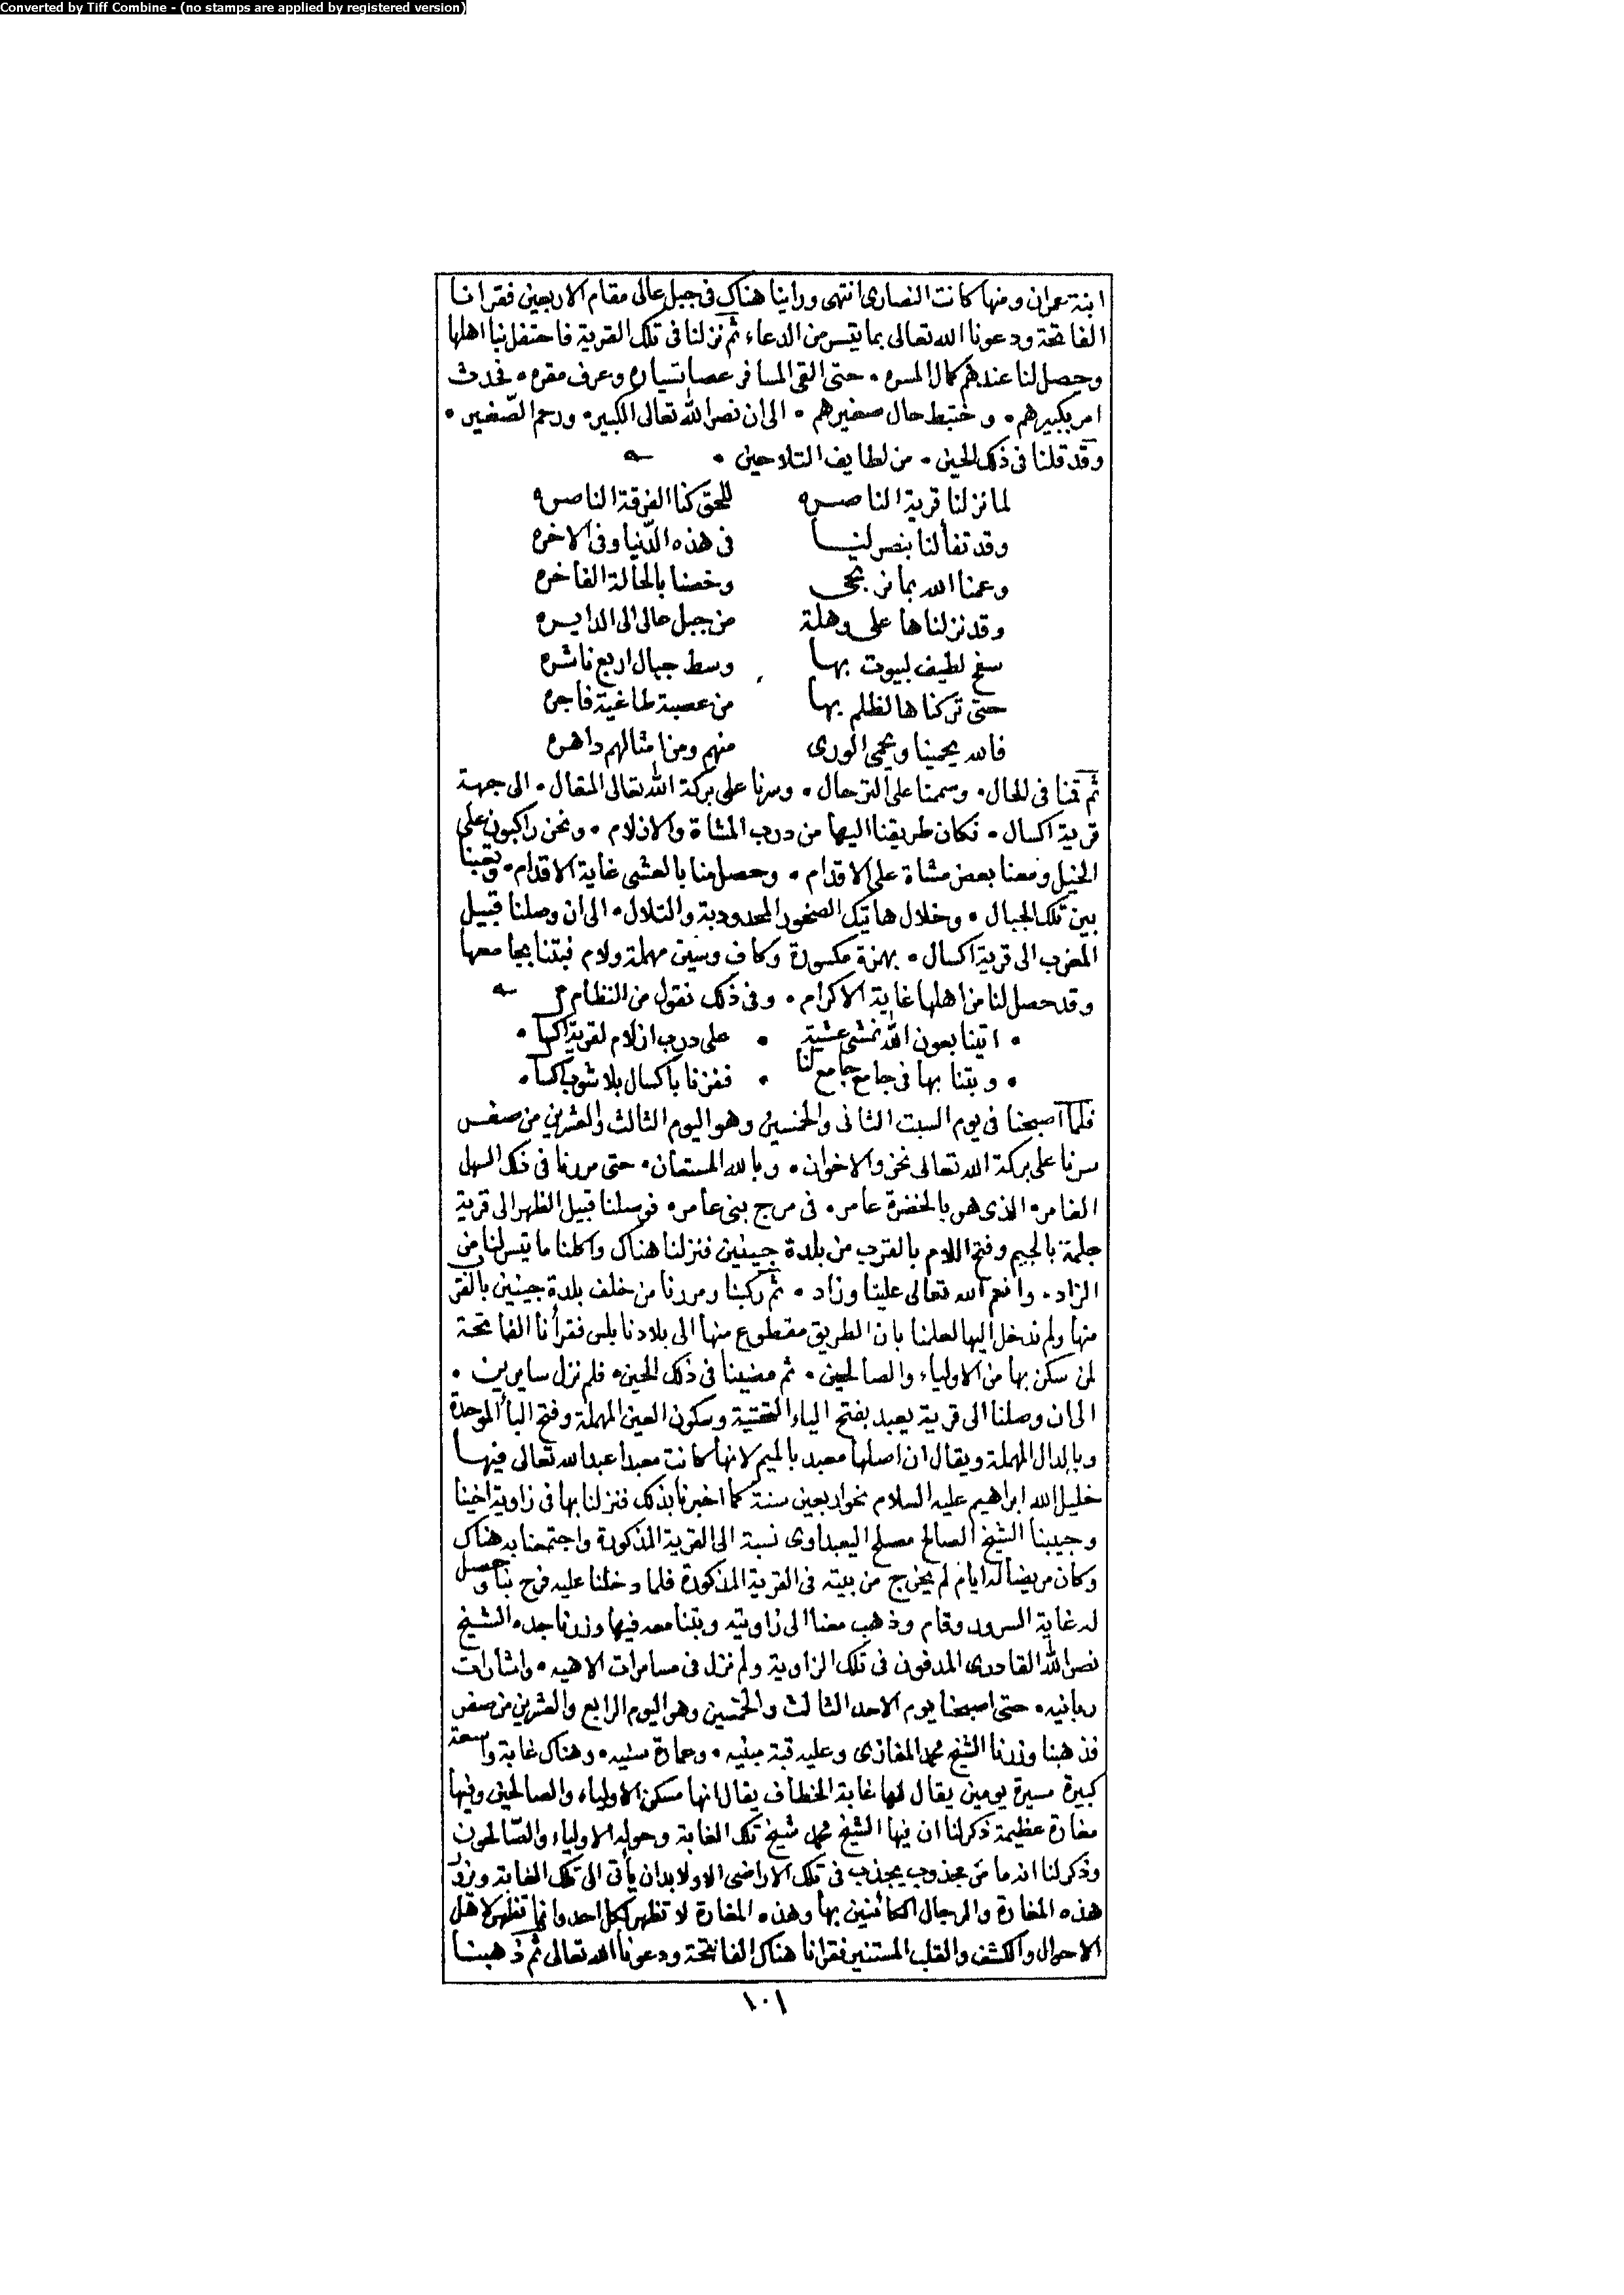 Converted by Tiff Combine - (no stamps are applied by registered version)
ابنة عمران ومنها كانت النصارى انتهى وراينا هناك فى جبل عالى مقام الاربعين فقرانا
الفاتحة ودعونا الله تعالى بما يتسر من الدعاء ثم نزلنا فى تلك القرية فاحتفل بنا اهلها
وحصل لنا عندهم كمال المسره • حتى القى المسافر عصا تسياره وعرف مقره • فحدث
امر بكبيرهم • وختبط حال صغيرهم • الى ان نصر الله تعالى الكبير • ورحم الصّغير •
وقد قلنا فى ذلك الحين • من لطايف التلاحين •
لما نزلنا قرية الناصره للحق كنا الفرقة الناصره
وقد تفألنا بنصر لنا فى هذه الدّنيا وفى الاخره
وعمنا الله بما نرتجى وخصنا بالحالة الفاخره
وقد نزلناها على وهلة من جبل عالى الى الدايره
سفح لطيف لبيوت بها وسط جبال اربع ناشره
حتى تركناها لظلم بها من عصبة طاغية فاجره
فالله يحمينا ويحمى الورى منهم ومن امثالهم داهره
ثم قمنا فى الحال • وسمنا على الترحال • وسرنا على بركة الله تعالى المتعال • الى جهة
قرية اكسال • فكان طريقنا اليها من درب المشاة والازلام • ونحن راكبون على
الخيل ومعنا بعض مشاة على الاقدام • وحصل منا بالمشى غاية الاقدام • وتعبنا
بين تلك الجبال • وخلال هاتيك الصخور المحدودبة والتلال • الى ان وصلنا قبيل
المغرب الى قرية اكسال • بهمزة مكسورة وكاف وسين مهملة ولام فبتنا بجامعها
وقد حصل لنا من اهلها غاية الاكرام • وفى ذلك نقول من النظام
• اتينا بعون الله نمشى عشية • على درب ازلام لقرية اكسال •
• وبتنا بها فى جامع جامع لنا • ففزنا باكسال بلا شوب اكسال •
فلما اصبحنا فى يوم السبت الثانى والخمسين وهو اليوم الثالث والعشرين من صفر
سرنا على بركة الله تعالى نحن والاخوان • وبالله المستعان • حتى مررنا فى ذلك السهل
الغامر • الذى هو بالخضرة عامر • فى مرج بنى عامر • فوصلنا قبيل الظهر الى قرية
جلمة بالجيم وفتح اللام بالقرب من بلدة جينين فنزلنا هناك واكلنا ما يتسر لنا من
الزاد • وانعم الله تعالى علينا وزاد • ثم ركبنا ومررنا من خلف بلدة جينين بالقرب
منها ولم ندخل اليها لعلمنا بان الطريق مقطوع منها الى بلاد نابلس فقرأنا الفاتحة
لمن سكن بها من الاولياء والصالحين • ثم مضينا فى ذلك الحين • فلم نزل سايرين •
الى ان وصلنا الى قرية يعبد بفتح الياء التحتية وسكون العين المهملة وفتح البأ الموحدة
وبالدال المهملة ويقال ان اصلها معبد بالميم لانها كانت معبدا عبد الله تعالى فيها
خليل الله ابراهيم عليه السلام نحو اربعين سنة كما اخبرنا بذلك فنزلنا بها فى زاوية اخينا
وحبيبنا الشيخ الصالح مصلح اليعبداوى نسبة الى القرية المذكورة واجتمعنا به هناك
وكان مريضا له ايام لم يخرج من بيته فى القرية المذكورة فلما دخلنا عليه فرح بنا وحصل
له غاية السرور وقام وذهب معنا الى زاويته وبتنا معه فيها وزرنا جده الشيخ
نصر الله القادرى المدفون فى تلك الزاوية ولم نزل فى مسامرات الاهيه • واشارات
ربانيه • حتى اصبحنا يوم الاحد الثالث والخمسين وهو اليوم الرابع والعشرين من صفر
فذهبنا وزرنا الشيخ محمد المغازى وعليه قبة مبنيه • وعمارة سنيه • وهناك غابة واسعة
كبيرة مسيرة يومين يقال لها غابة الخطاف يقال انها مسكن الاولياء والصالحين وفيها
مغارة عظيمة ذكر لنا ان فيها الشيخ محمد شيخ تلك الغابة وحوله الاولياء والصّالحون
وذكر لنا انه ما من مجذوب يجذب فى تلك الاراضى الا ولا بد ان يأتى الى تلك الغابة ويزور
هذه المغارة والرجال الكائنين بها وهذه المغارة لا تظهر لكل احد وانما تظهر لاهل
الاحوال والكشف والقلب المستنير فقرانا هناك الفاتحة ودعونا الله تعالى ثم ذهبنا
١٠١